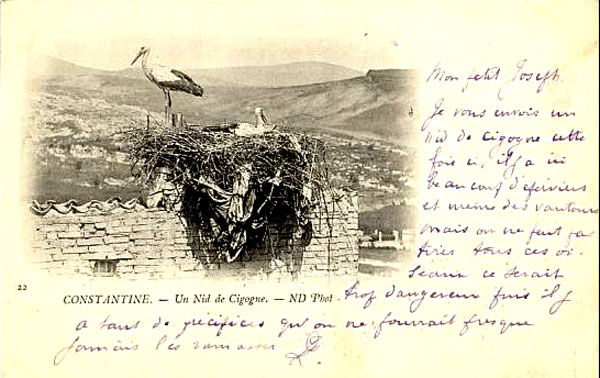 Mon petit Joseph.
Je vous envois un
nid de Cigogne cette
fois ci, il y a ici
beaucoup d'éperviers
et meme des vautours
mais on ne peut pas
tirer tous ces oi-
seaux ce serait
22
CONSTANTINE. — Un Nid de Cigogne. — ND Phot.
trop dangereux puis il y
a tant de précipices qu'on ne pourrait presque
jamais les ramasser